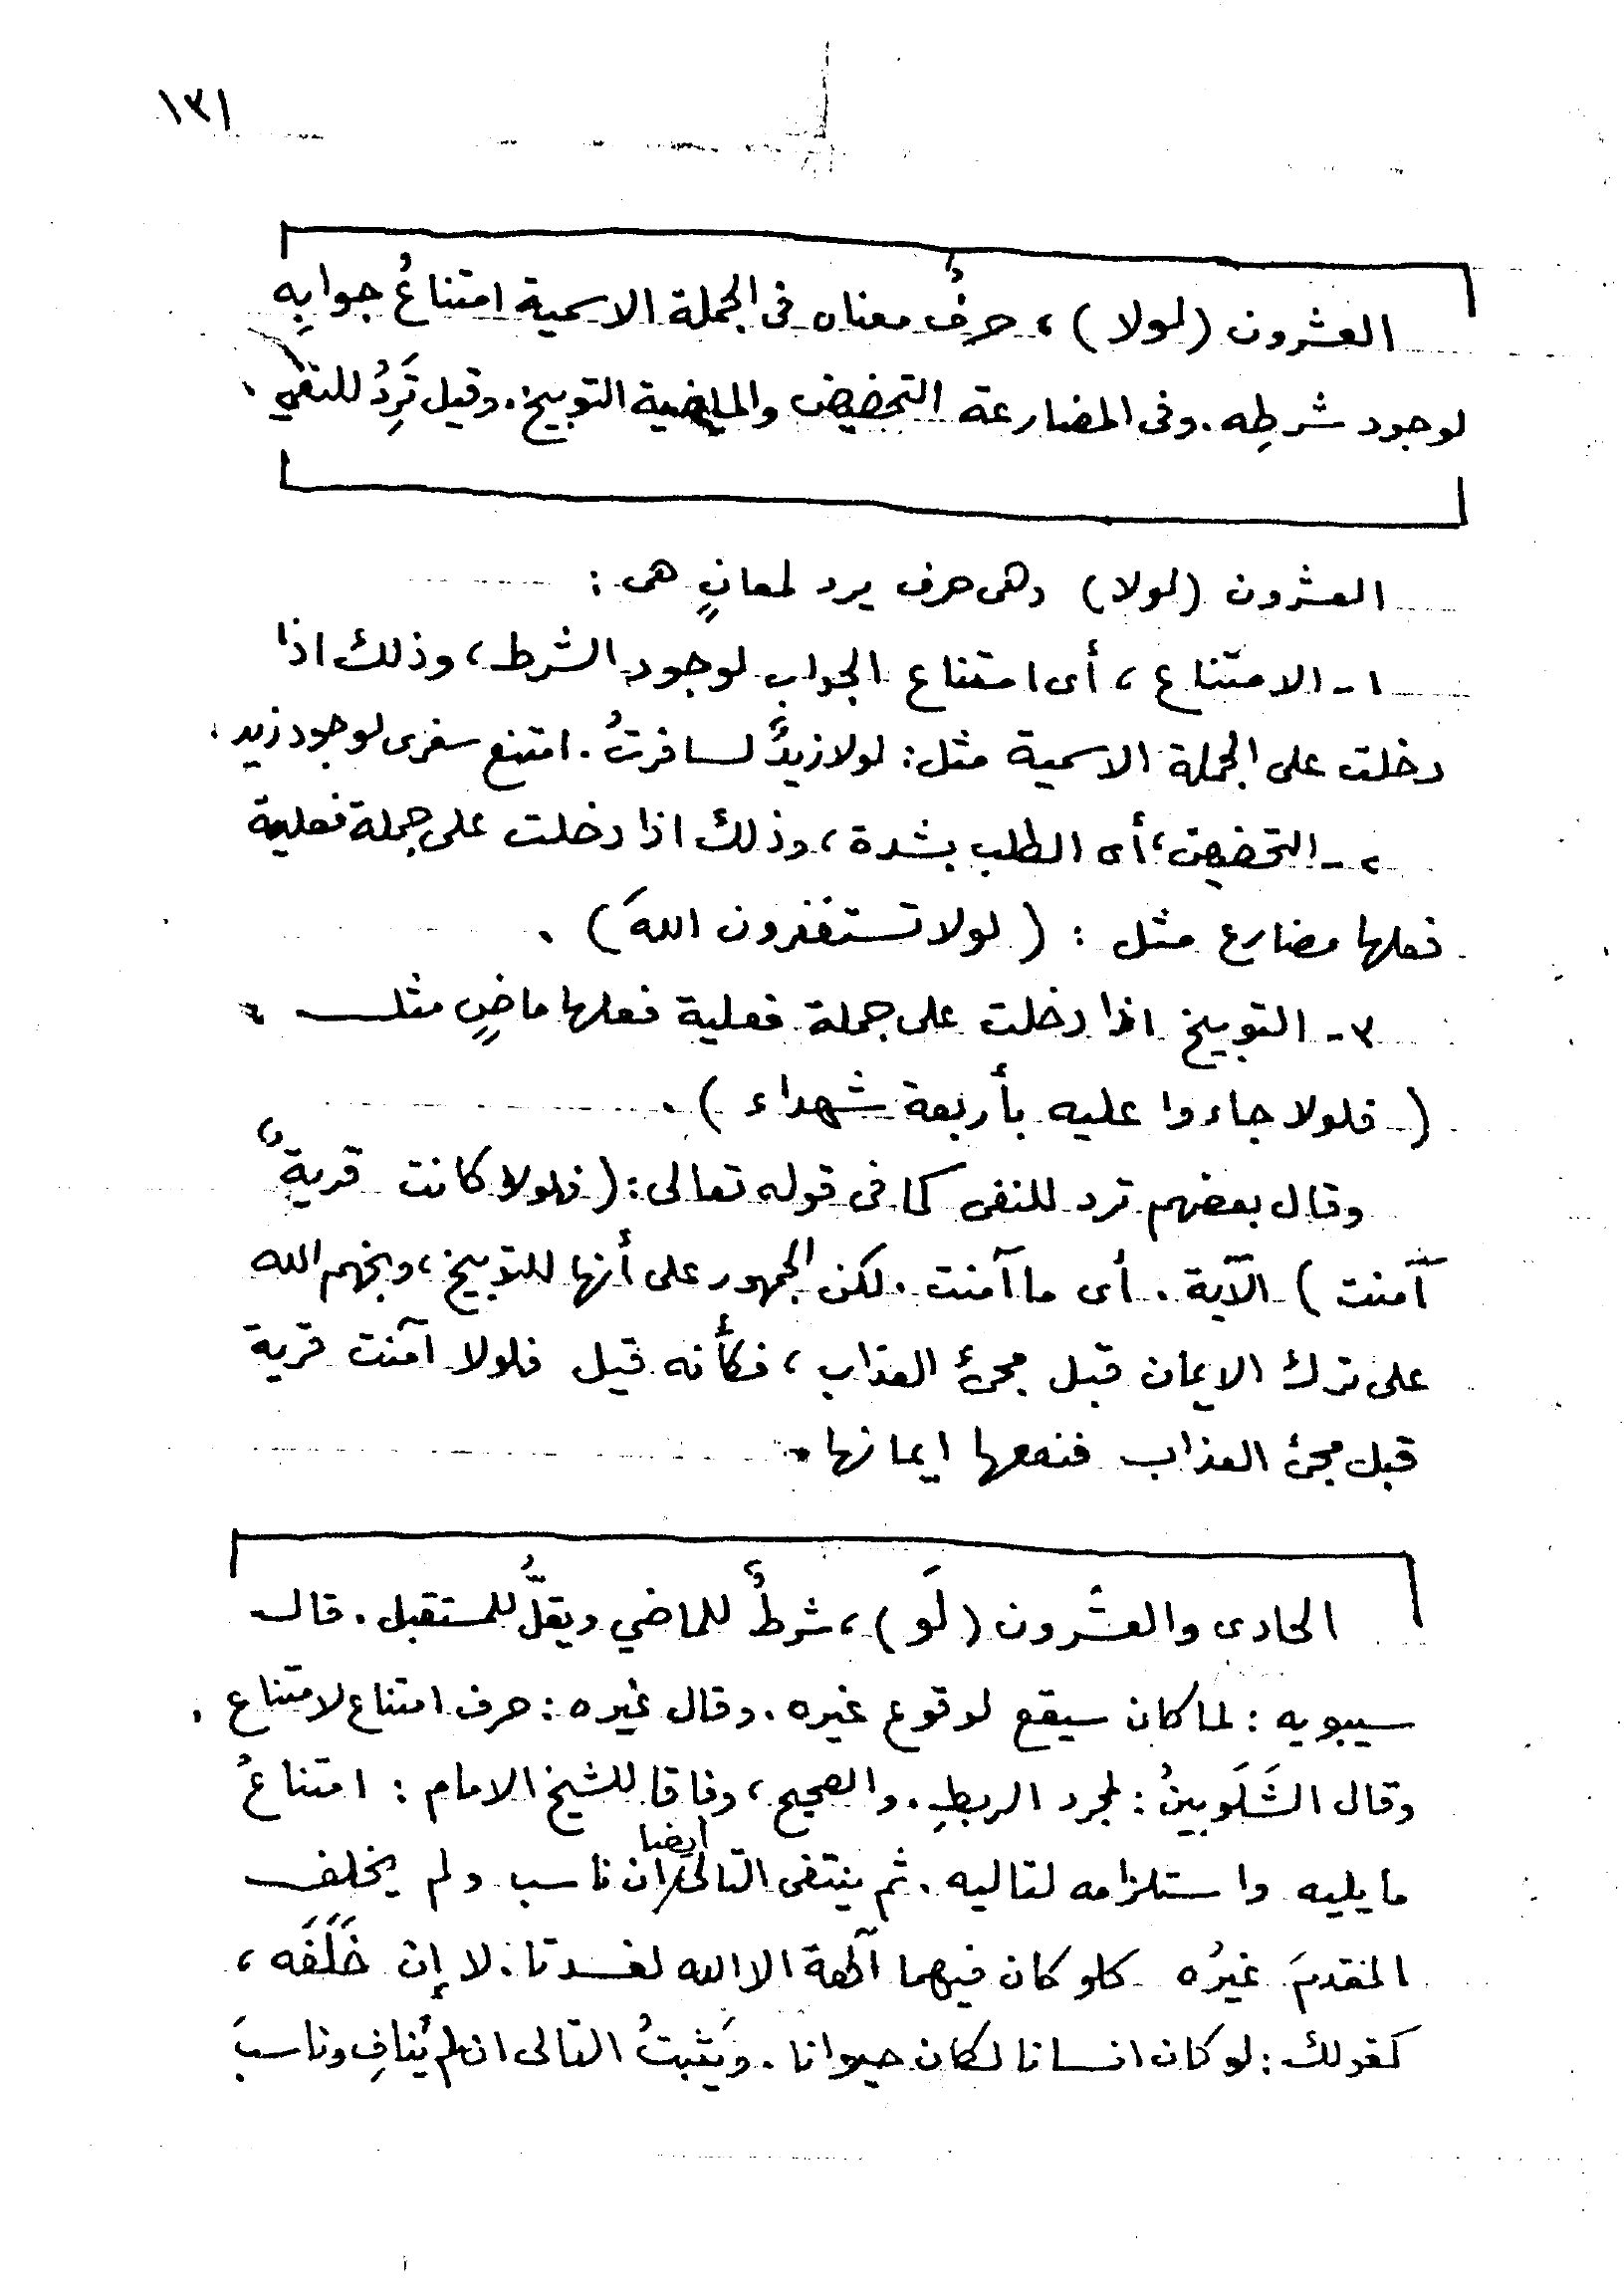 ١٣١
العشرون (لولا)، حرفٌ معناه فى الجملة الاسمية امتناعُ جوابِه
لوجود شرطِه. وفى المضارعة التحضيض والماضية التوبيخ. وقيل تَرِدُ للنفي.
العشرون (لولا) وهى حرف يرد لمعانٍ هى:
١- الامتناع، أى امتناع الجواب لوجود الشرط، وذلك اذا
دخلت على الجملة الاسمية مثل: لولا زيدٌ لسافرتُ. امتنع سفرى لوجود زيد.
٢- التحضيض، أى الطلب بشدة، وذلك اذا دخلت على جملة فعلية
فعلها مضارع مثل: (لولا تستغفرون اللهَ).
٣- التوبيخ اذا دخلت على جملة فعلية فعلها ماضٍ مثل
(فلولا جاءوا عليه بأربعة شهداء).
وقال بعضهم ترد للنفى كما فى قوله تعالى: (فلولا كانت قريةٌ
آمنت) الآية. أى ما آمنت. لكن الجمهور على أنها للتوبيخ، وبخهم الله
على ترك الايمان قبل مجئ العذاب، فكأنه قيل فلولا آمنت قرية
قبل مجئ العذاب فنفعها ايمانها.
الحادى والعشرون (لَو)، شرطٌ للماضي ويقلُّ للمستقبل. قال
سيبويه: لما كان سيقع لوقوع غيره. وقال غيره: حرف امتناع لامتناع.
وقال الشَلَوبينُ: لمجرد الربطِ. والصحيح، وفاقا للشيخ الامام: امتناعُ
ما يليه واستلزامه لتاليه. ثم ينتفى التالى أيضا ان ناسب ولم يخلف
المقدمَ غيرُه كلو كان فيهما آلهة الا الله لفسدتا. لا إن خَلَفَه،
كقولك: لو كان انسانا لكان حيوانا. ويَثبتُ التالى ان لم يُنافِ وناسبَ